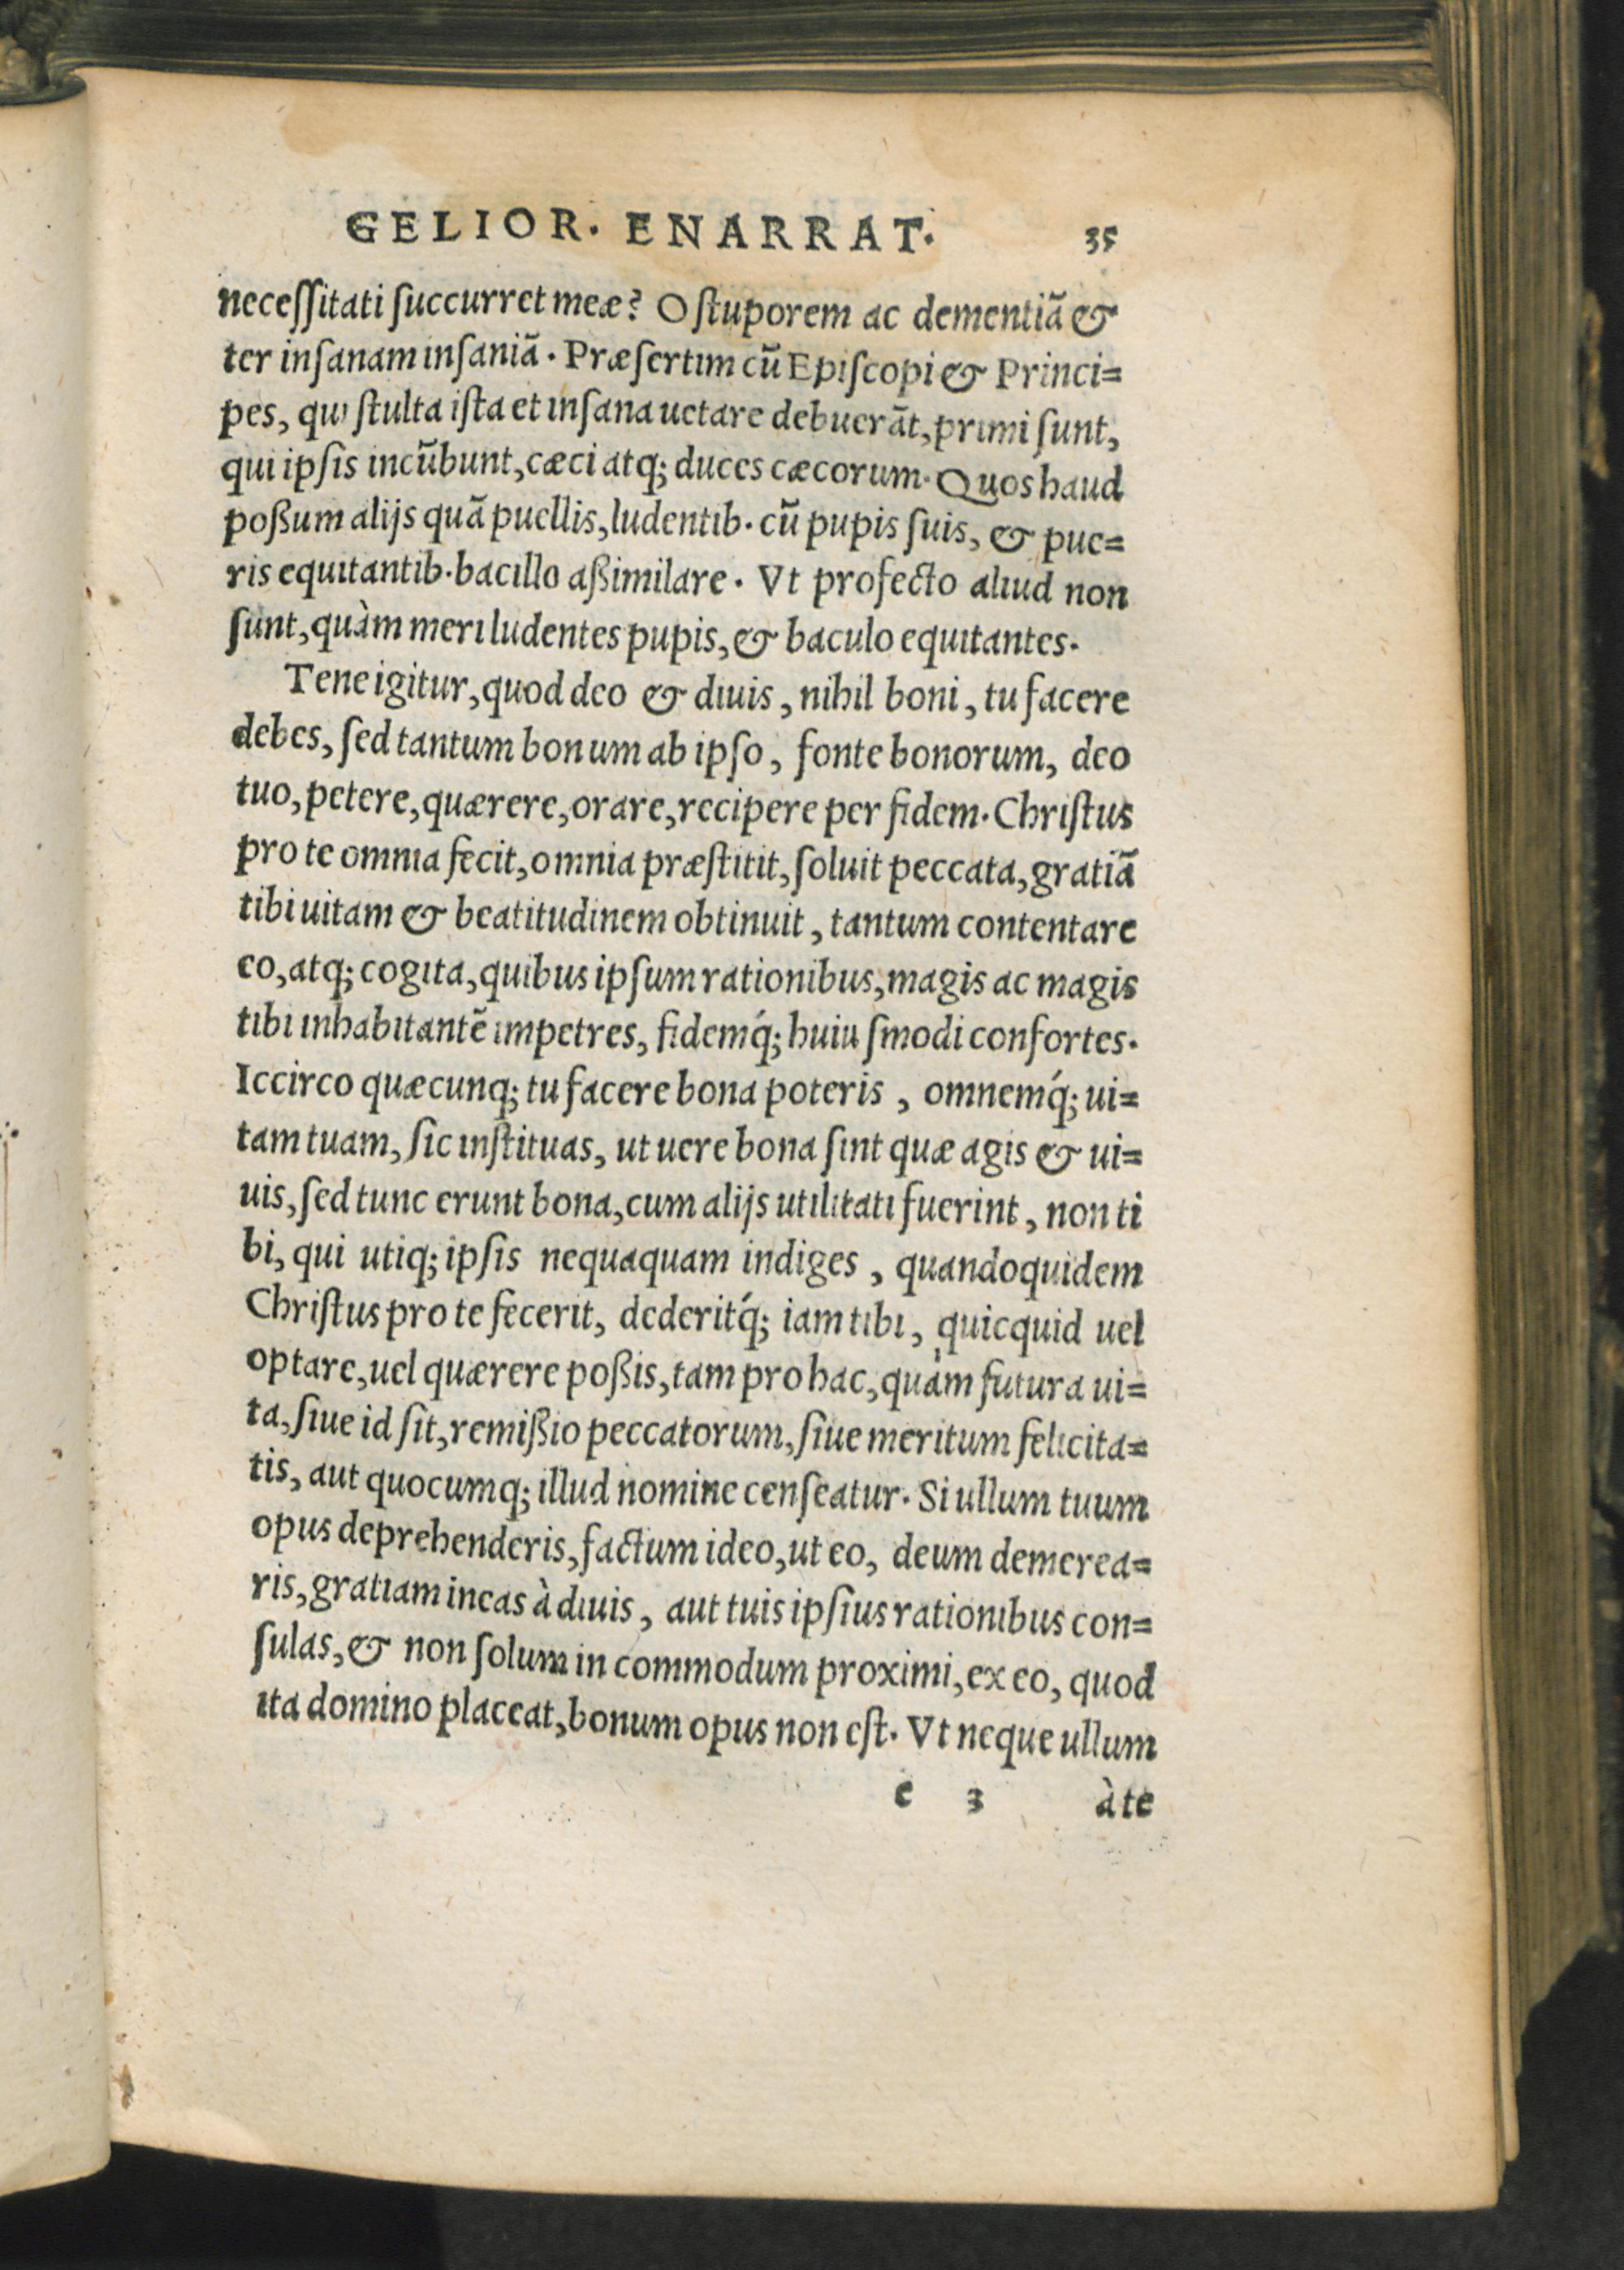 GELIOR. ENARRAT. 35
neceſſitati ſuccurret meæ? O ſtuporem ac dementiã &
ter inſanam inſaniã. Præſertim cũ Epiſcopi & Princi=
pes, qui ſtulta iſta et inſana uetare debuerãt, primi ſunt,
qui ipſis incũbunt, cæci atq; duces cæcorum. Quos haud
poßum alijs quã puellis, ludentib. cũ pupis ſuis, & pue=
ris equitantib. bacillo aßimilare. Vt profecto aliud non
ſunt, quàm meri ludentes pupis, & baculo equitantes.
Tene igitur, quod deo & diuis, nihil boni, tu facere
debes, ſed tantum bonum ab ipſo, fonte bonorum, deo
tuo, petere, quærere, orare, recipere per fidem. Chriſtus
pro te omnia fecit, omnia præſtitit, ſoluit peccata, gratiã
tibi uitam & beatitudinem obtinuit, tantum contentare
eo, atq; cogita, quibus ipſum rationibus, magis ac magis
tibi inhabitantẽ impetres, fidemq́; huiuſmodi confortes.
Iccirco quæcunq; tu facere bona poteris, omnemq́; ui=
tam tuam, ſic inſtituas, ut uere bona ſint quæ agis & ui=
uis, ſed tunc erunt bona, cum alijs utilitati fuerint, non ti
bi, qui utiq; ipſis nequaquam indiges, quandoquidem
Chriſtus pro te fecerit, dederitq́; iam tibi, quicquid uel
optare, uel quærere poßis, tam pro hac, quàm futura ui=
ta, ſiue id ſit, remißio peccatorum, ſiue meritum felicita=
tis, aut quocumq; illud nomine cenſeatur. Si ullum tuum
opus deprehenderis, factum ideo, ut eo, deum demerea=
ris, gratiam ineas à diuis, aut tuis ipſius rationibus con=
ſulas, & non ſolum in commodum proximi, ex eo, quod
ita domino placeat, bonum opus non eſt. Vt neque ullum
e 3 à te